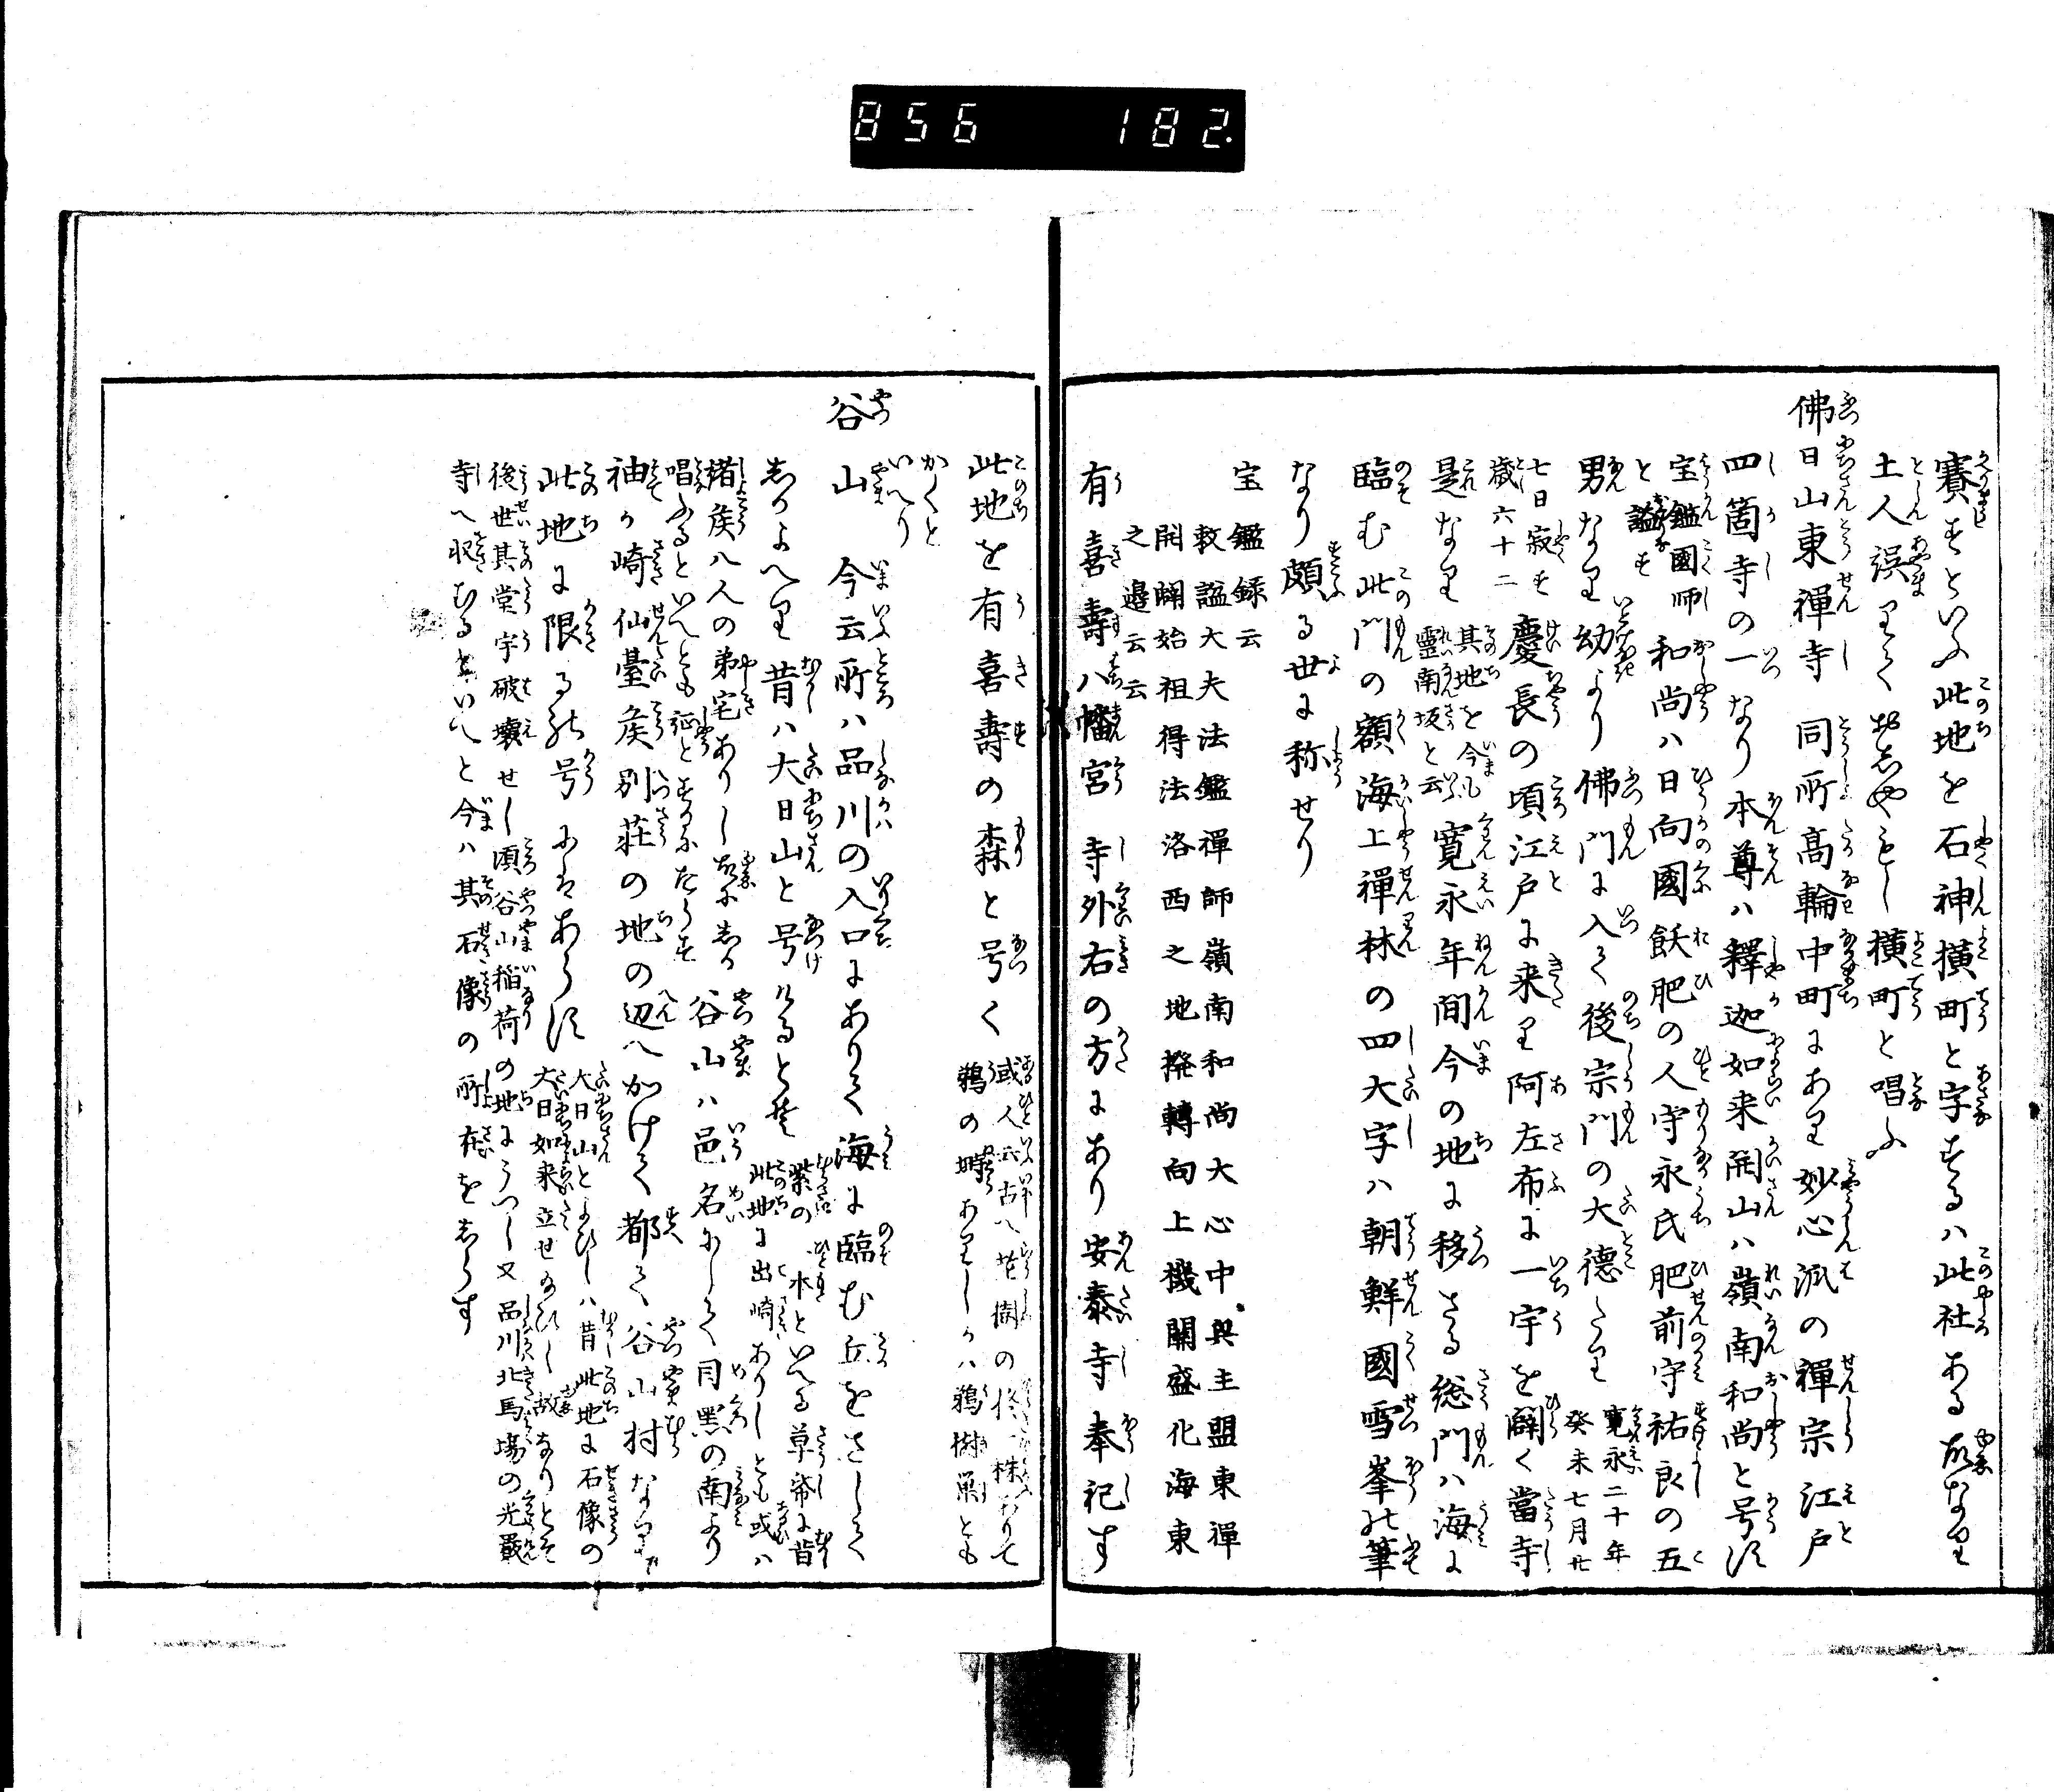 856 182.
賽すといふ此地を石神横町と字するハ此社ある故なり
土人誤りておしやもし横町と唱ふ
佛日山東禪寺 同所高輪中町にあり妙心派の禪宗江戸
四箇寺の一なり本尊ハ釋迦如来開山ハ嶺南和尚と号す
宝鑑國師
と謚す
和尚ハ日向國飫肥の人守永氏肥前守祐良の五
男なり幼より佛門に入て後宗門の大德たり
寛永二十年
癸未七月廿
七日寂す
歳六十二
慶長の頃江戸に来り阿左布に一宇を闢く當寺
是なり
其地を今も
靈南坂と云
寛永年間今の地に移さる総門ハ海に
臨む此門の額海上禪林の四大字ハ朝鮮國雪峯の筆
なり頗る世に称せり
宝鑑録云
敕謚大夫法鑑禪師嶺南和尚大心中興主盟東禪
開闢始祖得法洛西之地撥轉向上機關盛化海東
之邉云云
有喜壽八幡宮 寺外右の方にあり安泰寺奉祀す
此地を有喜壽の森と号く
或人云古ハ
鵜の塒ありしかハ鵜樹巣とも
かくと
いへり
谷山 今云所ハ品川の入口にありて海に臨む丘をさして
しかよへり昔ハ大日山と号けるとそ
紫の一本といへる草帋に昔
此地に出崎ありしとも或ハ
諸矦八人の弟宅ありし故にしか
唱ふるといへとも證とするにたらす
谷山ハ邑名にして目黒の南より
袖か崎仙臺矦別莊の地の辺へかけて都て谷山村なり
此地に限るの号にはあらす
大日山とよひしハ昔此地に石像の
大日如来立せ給ひし故なりとそ
後世其堂宇破壊せし頃谷山稲荷の地にうつし又品川北馬場の光嚴
寺へ収むるといへと今ハ其石像の所在をしらす